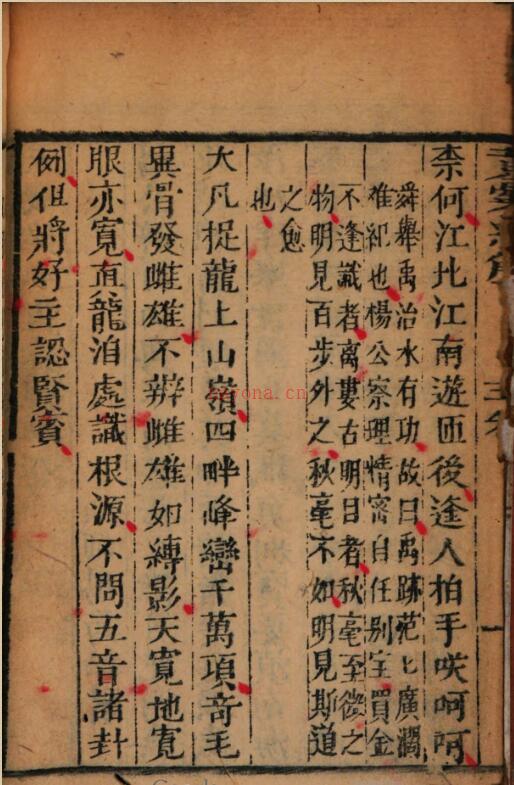 柰何江北江南遊匝後逢人拍手咲呵呵
舜舉禹治水有功故曰禹跡茫匕廣濶
難紀也楊公察理精密自任别宝買金
不逢識者離婁古明目者秋毫至微之
物明見百步外之秋毫不如明見斯道
之愈
也
大凡捉龍上山嶺四畔峰巒千萬項奇毛
異骨發雌雄不辨雌雄如縳影天寛地寛
眼亦寛直龍泊處識根源不問五音諸卦
例但將好主認賢賓
yona.cn